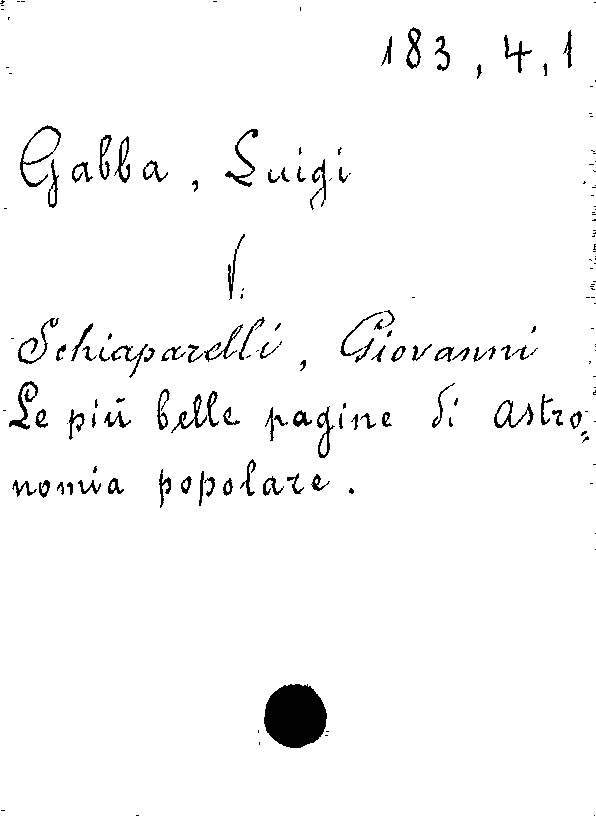 183, 4, 1
Gabba, Luigi
V.
Schiaparelli, Giovanni
Le più belle pagine di astro-
nomia popolare.